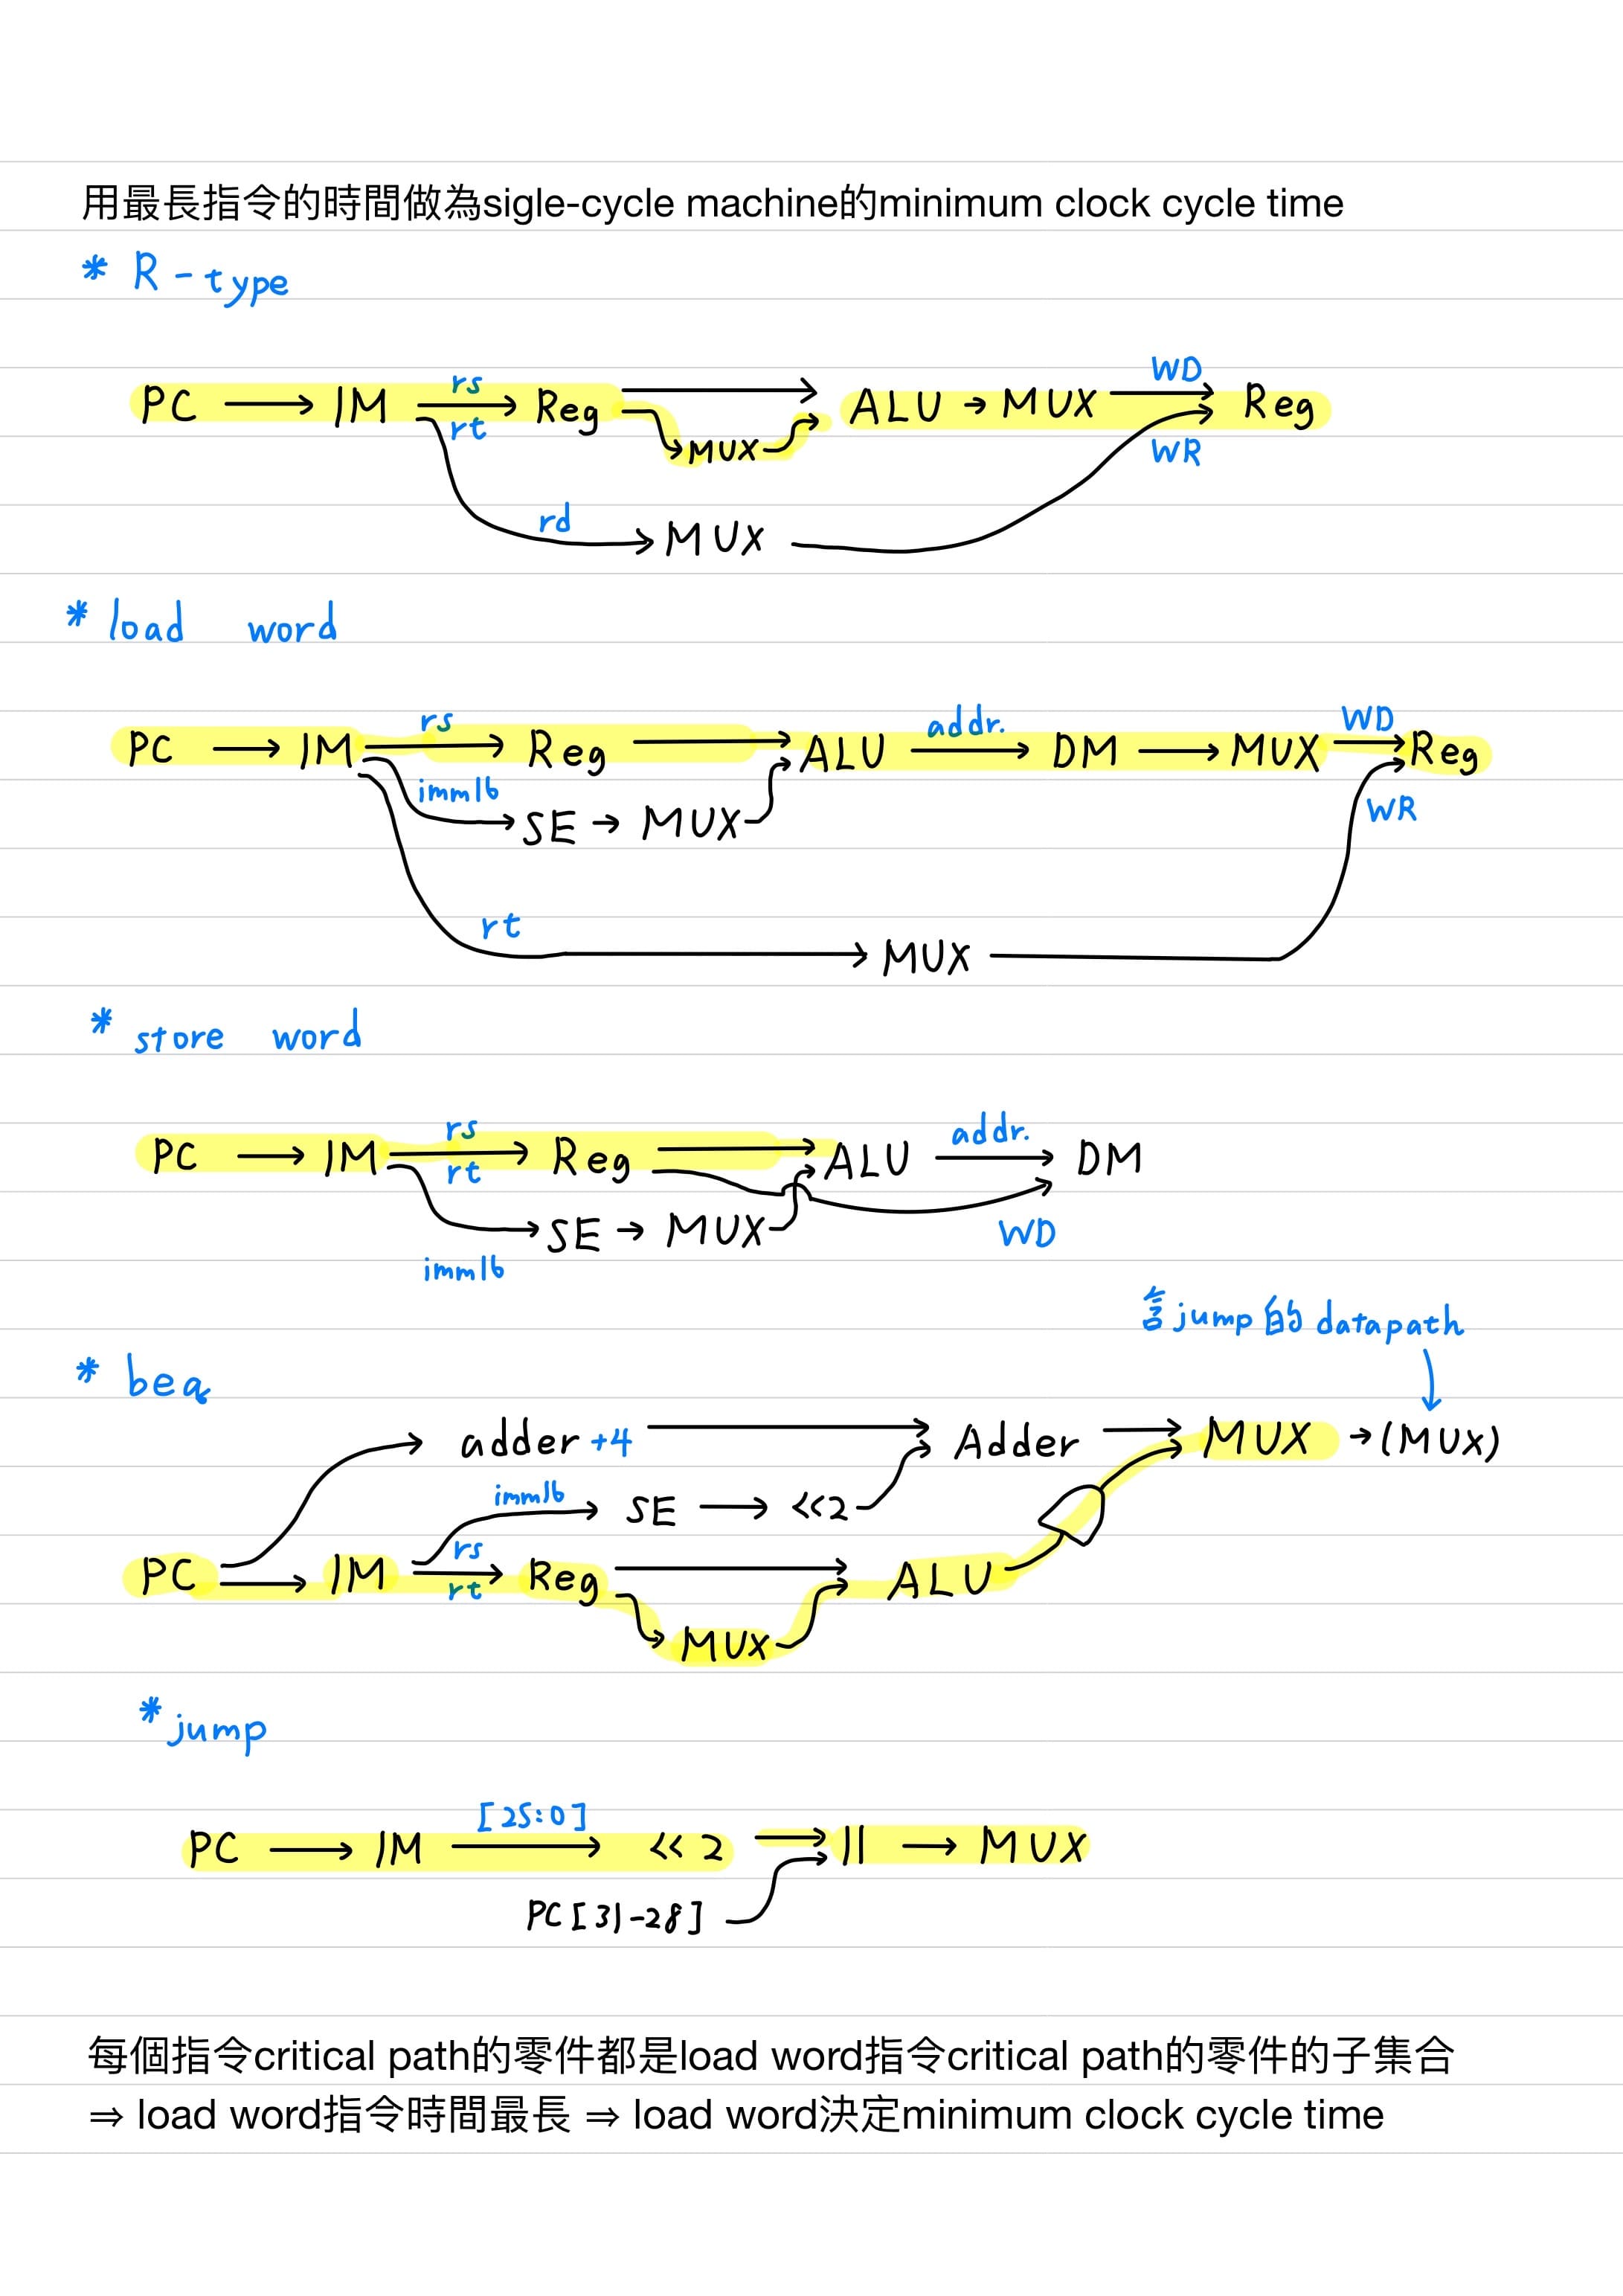 用最長指令的時間做為sigle-cycle machine的minimum clock cycle time
* R-type
PC → IM rs rt → Reg → ALU → MUX WD → Reg
MUX WR
rd → MUX
* load word
PC → IM rs → Reg → ALU addr. → DM → MUX WD → Reg
imm16 SE → MUX WR
rt → MUX
* store word
PC → IM rs rt → Reg → ALU addr. → DM
imm16 SE → MUX WD
含jump的datapath
* beq
adder +4 → Adder → MUX → (MUX)
imm16 SE → <<2
PC → IM rs rt → Reg → ALU
MUX
* jump
PC → IM [25:0] → <<2 → || → MUX
PC[31-28]
每個指令critical path的零件都是load word指令critical path的零件的子集合
⇒ load word指令時間最長 ⇒ load word決定minimum clock cycle time